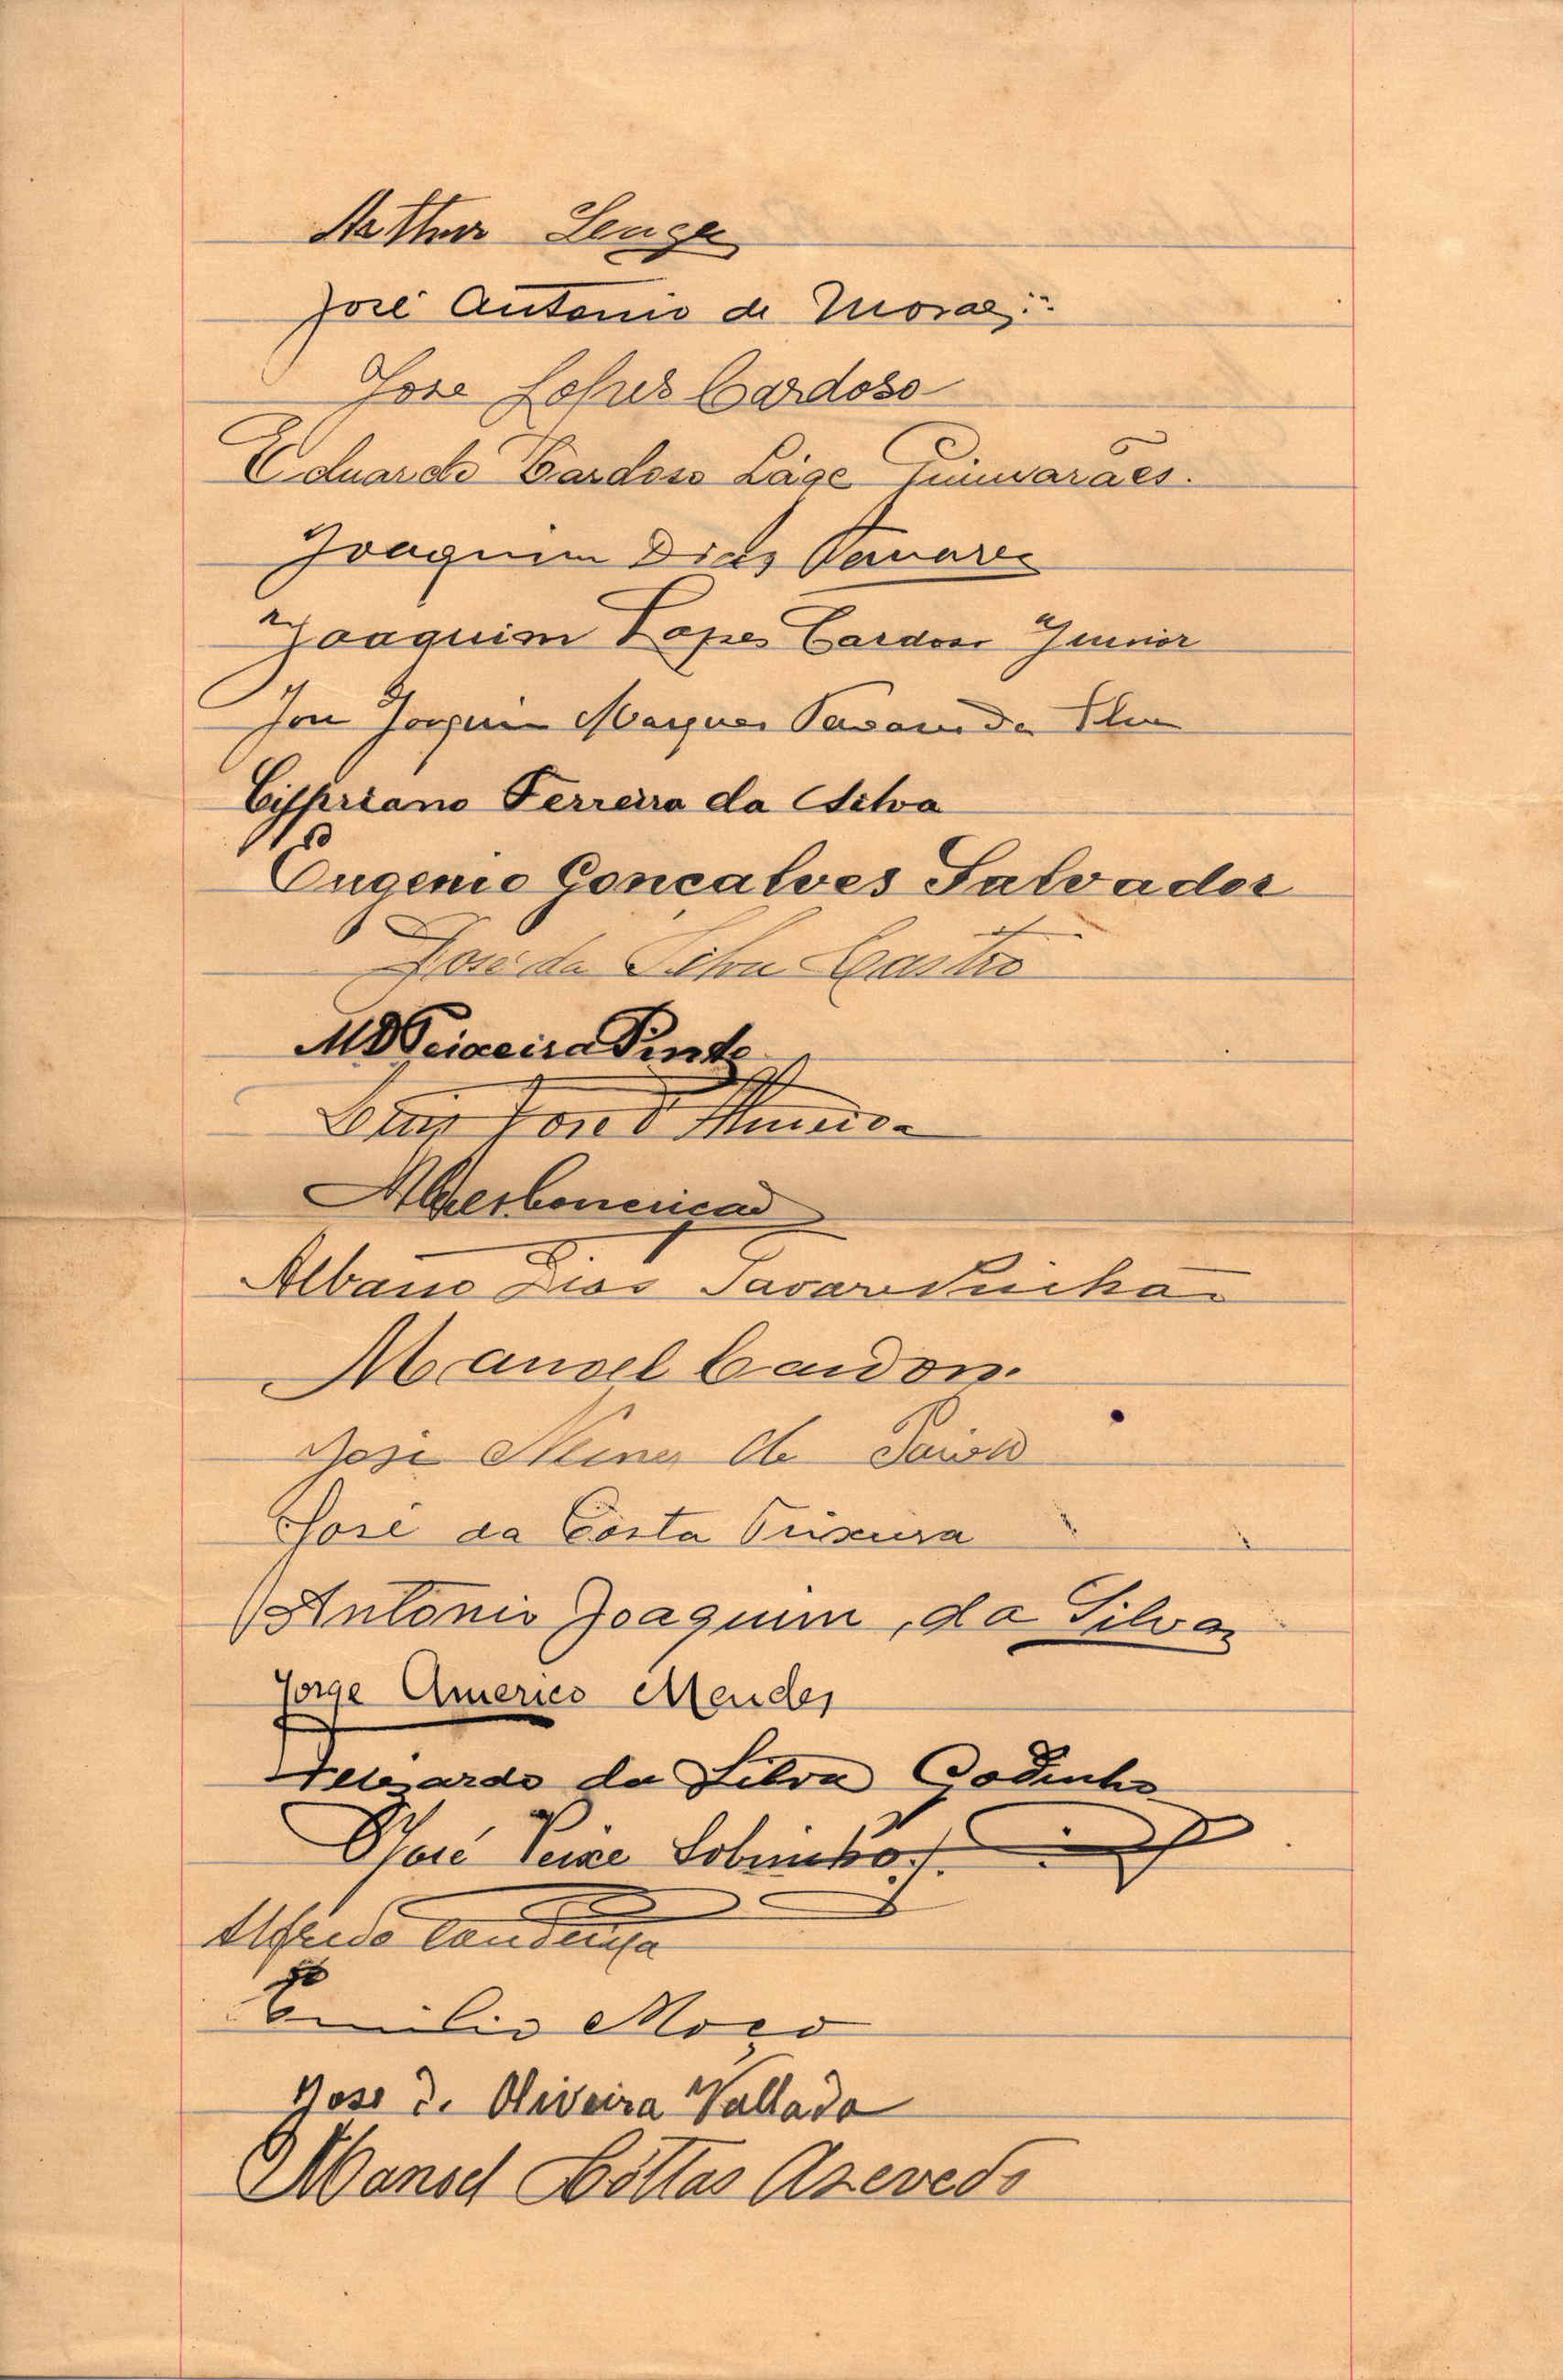 Arthur
José Antonio de Moraes
Jose Lopes Cardoso
Eduardo Cardoso Lage Guimarães.
Joaquim Dias Tavares
Joaquim Lopes Cardoso Junior
Joaquim Marques da Silva
Cippriano Ferreira da Silva
Eugenio Gonçalves Salvador
José da Silva Castro
Teixeira Pinto
Luiz José
Albano Dias Tavares
Manoel Cardoso
José de
José da Costa Teixeira
Antonio Joaquim da Silva
Jorge Americo Mendes
da Silva Godinho
José Peixe Sobrinho
Alfredo
Emilio Moço
Jose d. Oliveira Vallada
Manoel Bottas Azevedo